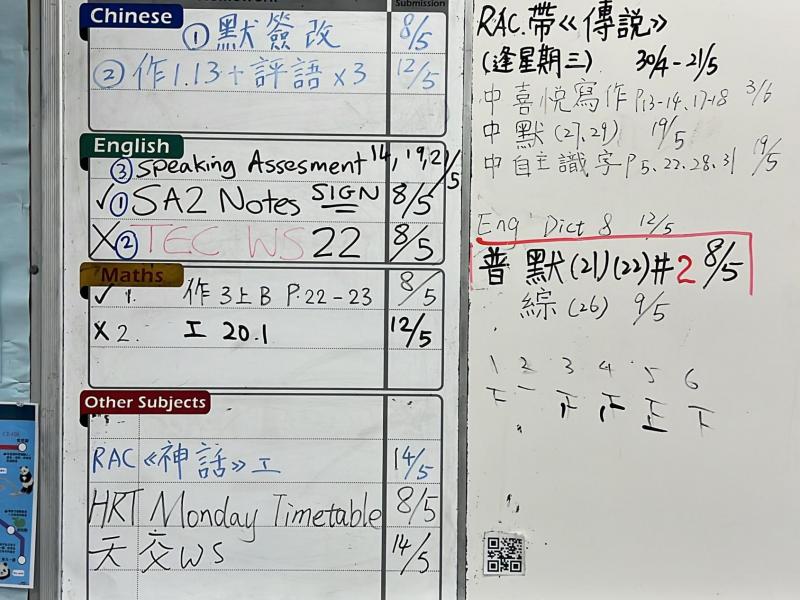 Submission
Chinese
① 默簽改 8/5
② 作1.13+評語x3 12/5
English
③ Speaking Assesment 14, 19, 21/5
✓① SA2 Notes SIGN 8/5
X② TEC WS 22 8/5
Maths
✓ 1. 作3上B P.22-23 8/5
X 2. 工 20.1 12/5
Other Subjects
RAC《神話》工 14/5
HRT Monday Timetable 8/5
天交WS 14/5
RAC.帶《傳說》
(逢星期三) 30/4-21/5
中喜悅寫作 P.13-14、17-18 3/6
中默(27、29) 19/5
中自主識字 P5、22、28、31 19/5
Eng Dict 8 12/5
普默(21)(22)#2 8/5
綜(26) 9/5
1 2 3 4 5 6